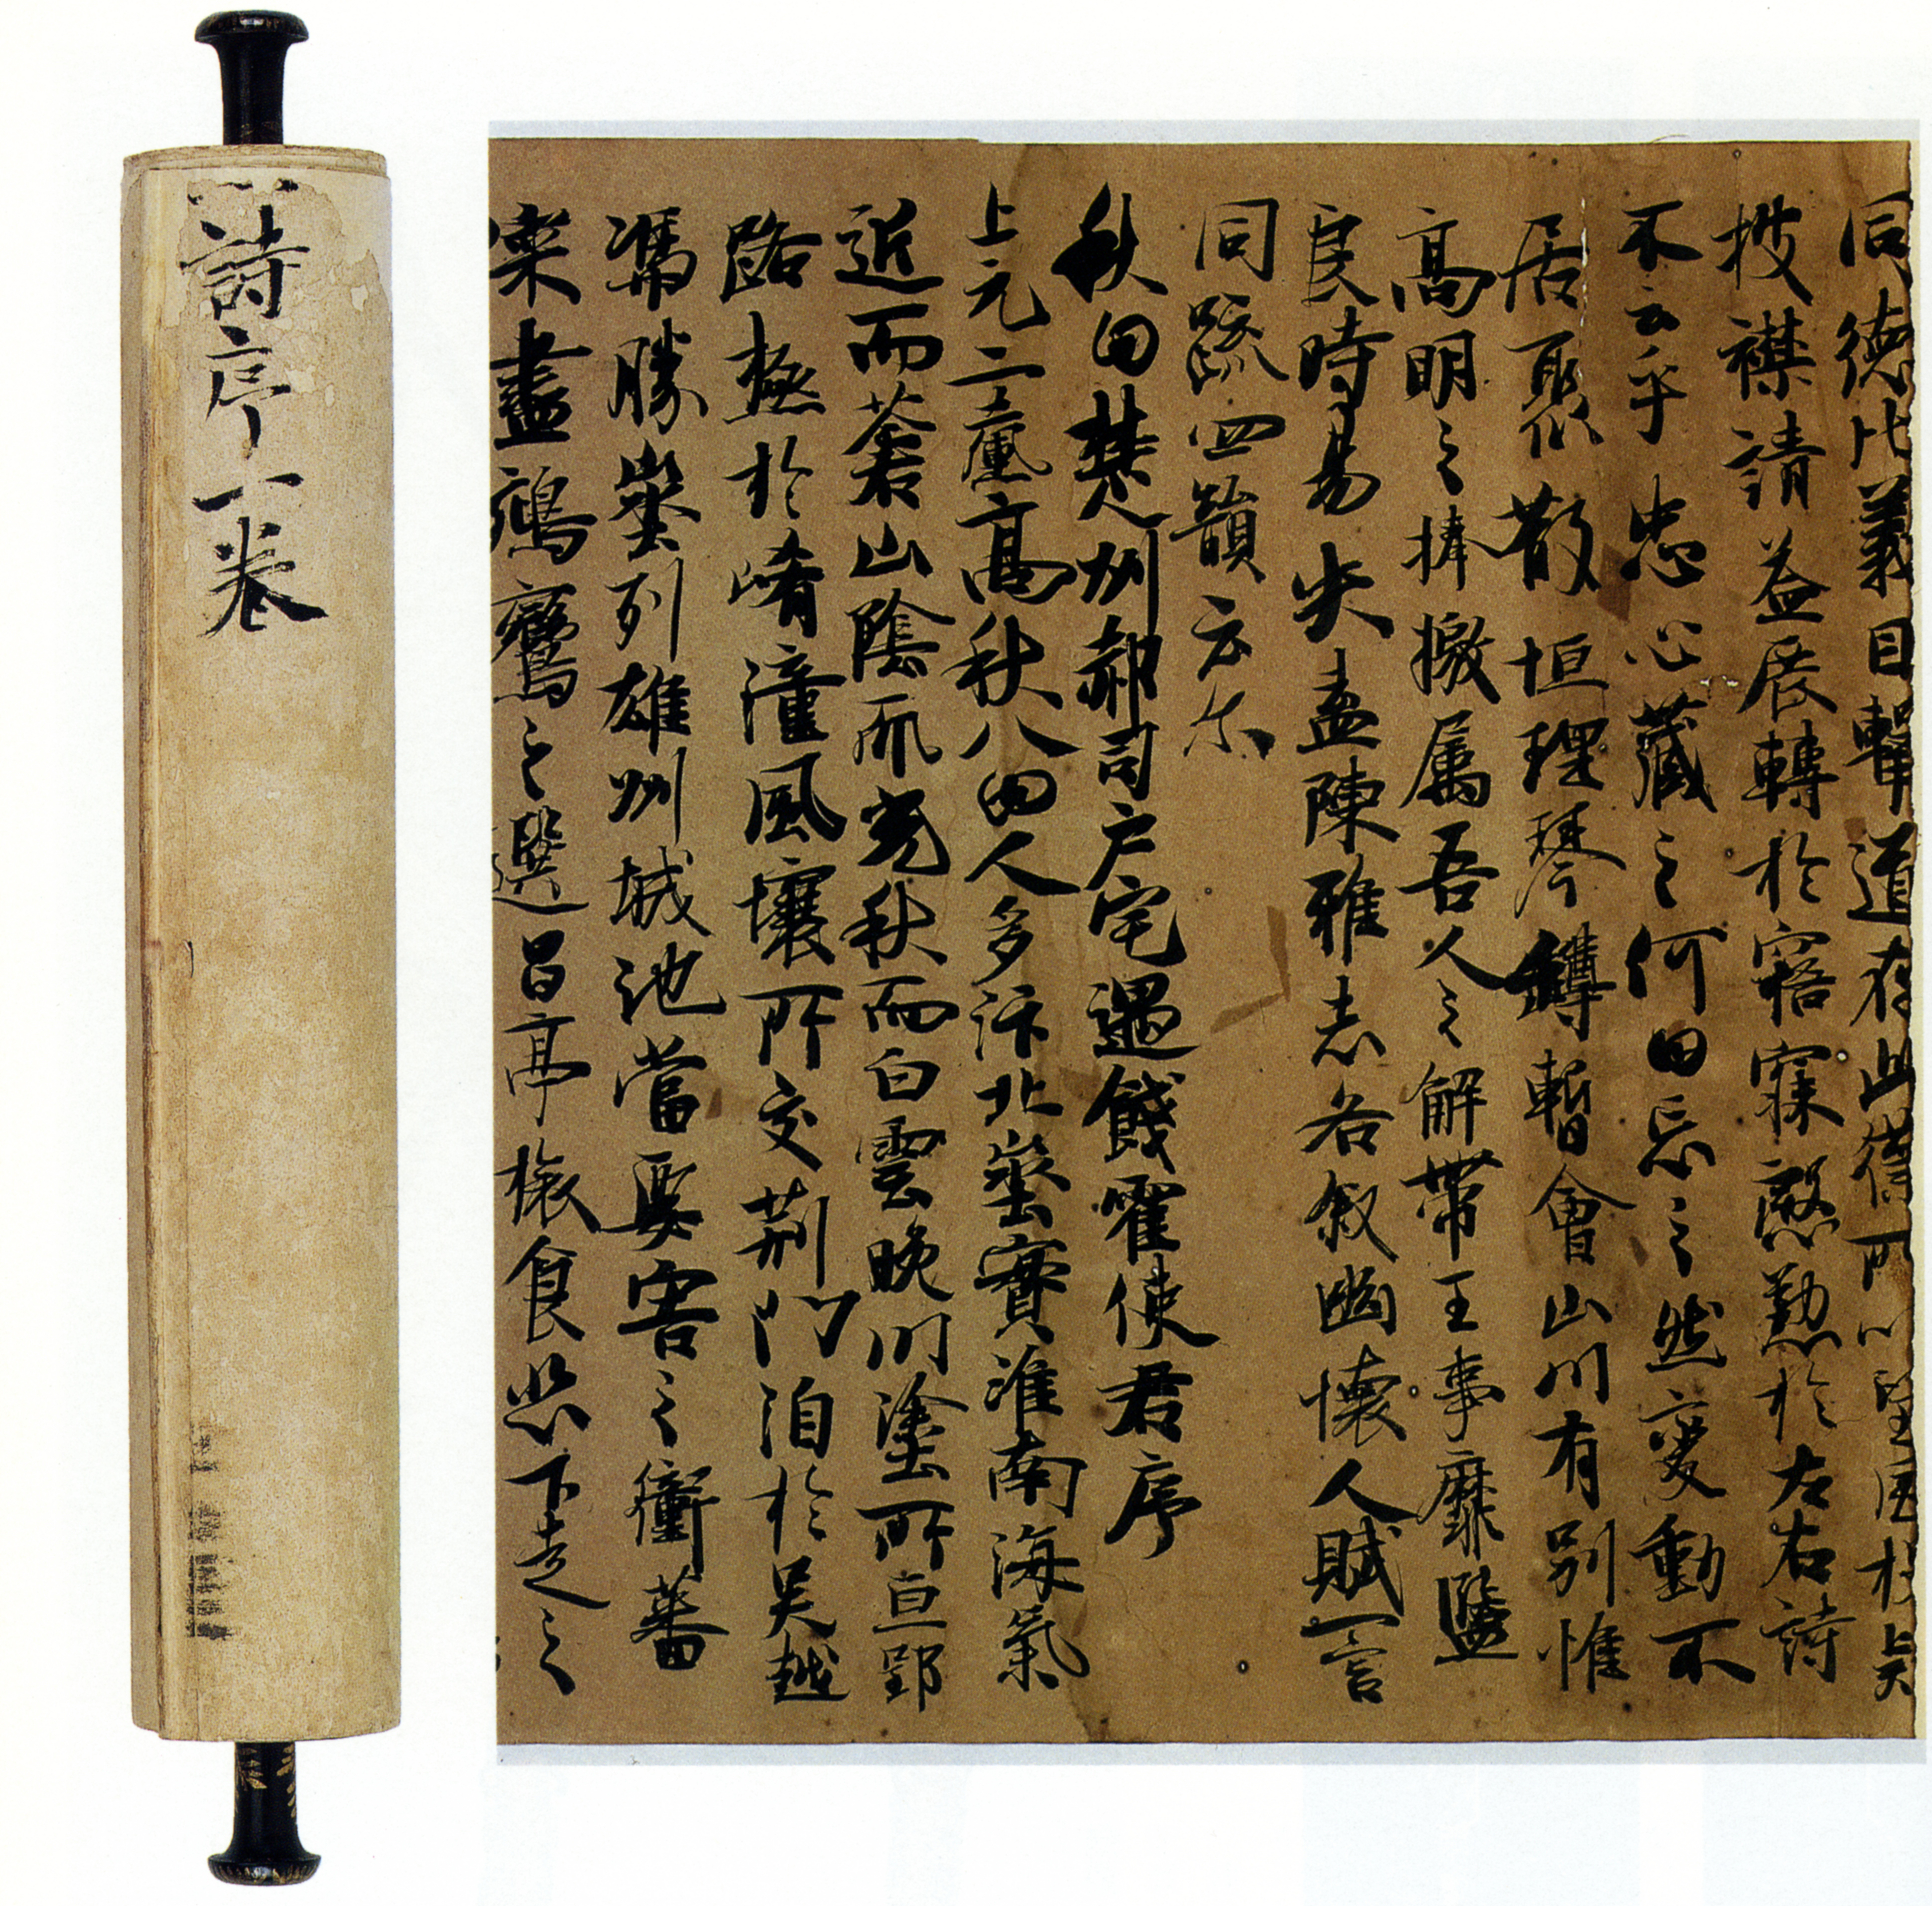 詩序一卷
同德比義目擊道存此得所以望風於
披襟請益展轉於寤寐慇懃於左右詩
不云乎忠心藏之何𡆠忘之然變動不
居聚散恒理琴罇暫會山川有別惟
高明之捧檄属吾人之解帶王事靡盬
良時易失盍陳雅志各叙幽懷人賦一言
同疏四韻云尓
秋𡆠楚州郝司戶宅遇餞霍使君序
上元二𡕀高秋八囝人多汴北埊實淮南海氣
近而蒼山陰𠀑光秋而白雲晚川塗所亘郢
路極於崤潼風壤所交荊門洎於吳越
馮勝埊列雄州城池當要害之衝蕃
寀盡鵷鸞之選昌亭旅食悲下走之